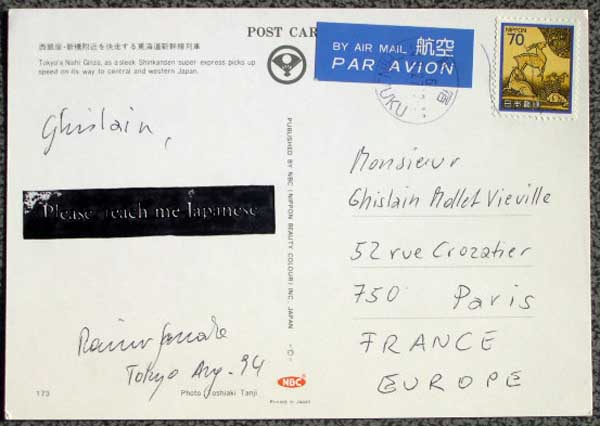 POST CAR
西銀座・新橋附近を快走する東海道新幹線列車
Tokyo's Nishi Ginza, as a sleek Shinkansen super express picks up
speed on its way to central and western Japan.
BY AIR MAIL 航空
PAR AVION
NIPPON
70
日本郵便
UKU
Ghislain,
Please teach me Japanese
Tokyo Aug. 94
173
Photo Yoshiaki Tanji
PUBLISHED BY NBC (NIPPON BEAUTY COLOUR) INC. JAPAN
NBC
Printed in Japan
Monsieur
Ghislain Mollet Vieville
52 rue Crozatier
750 Paris
FRANCE
EUROPE